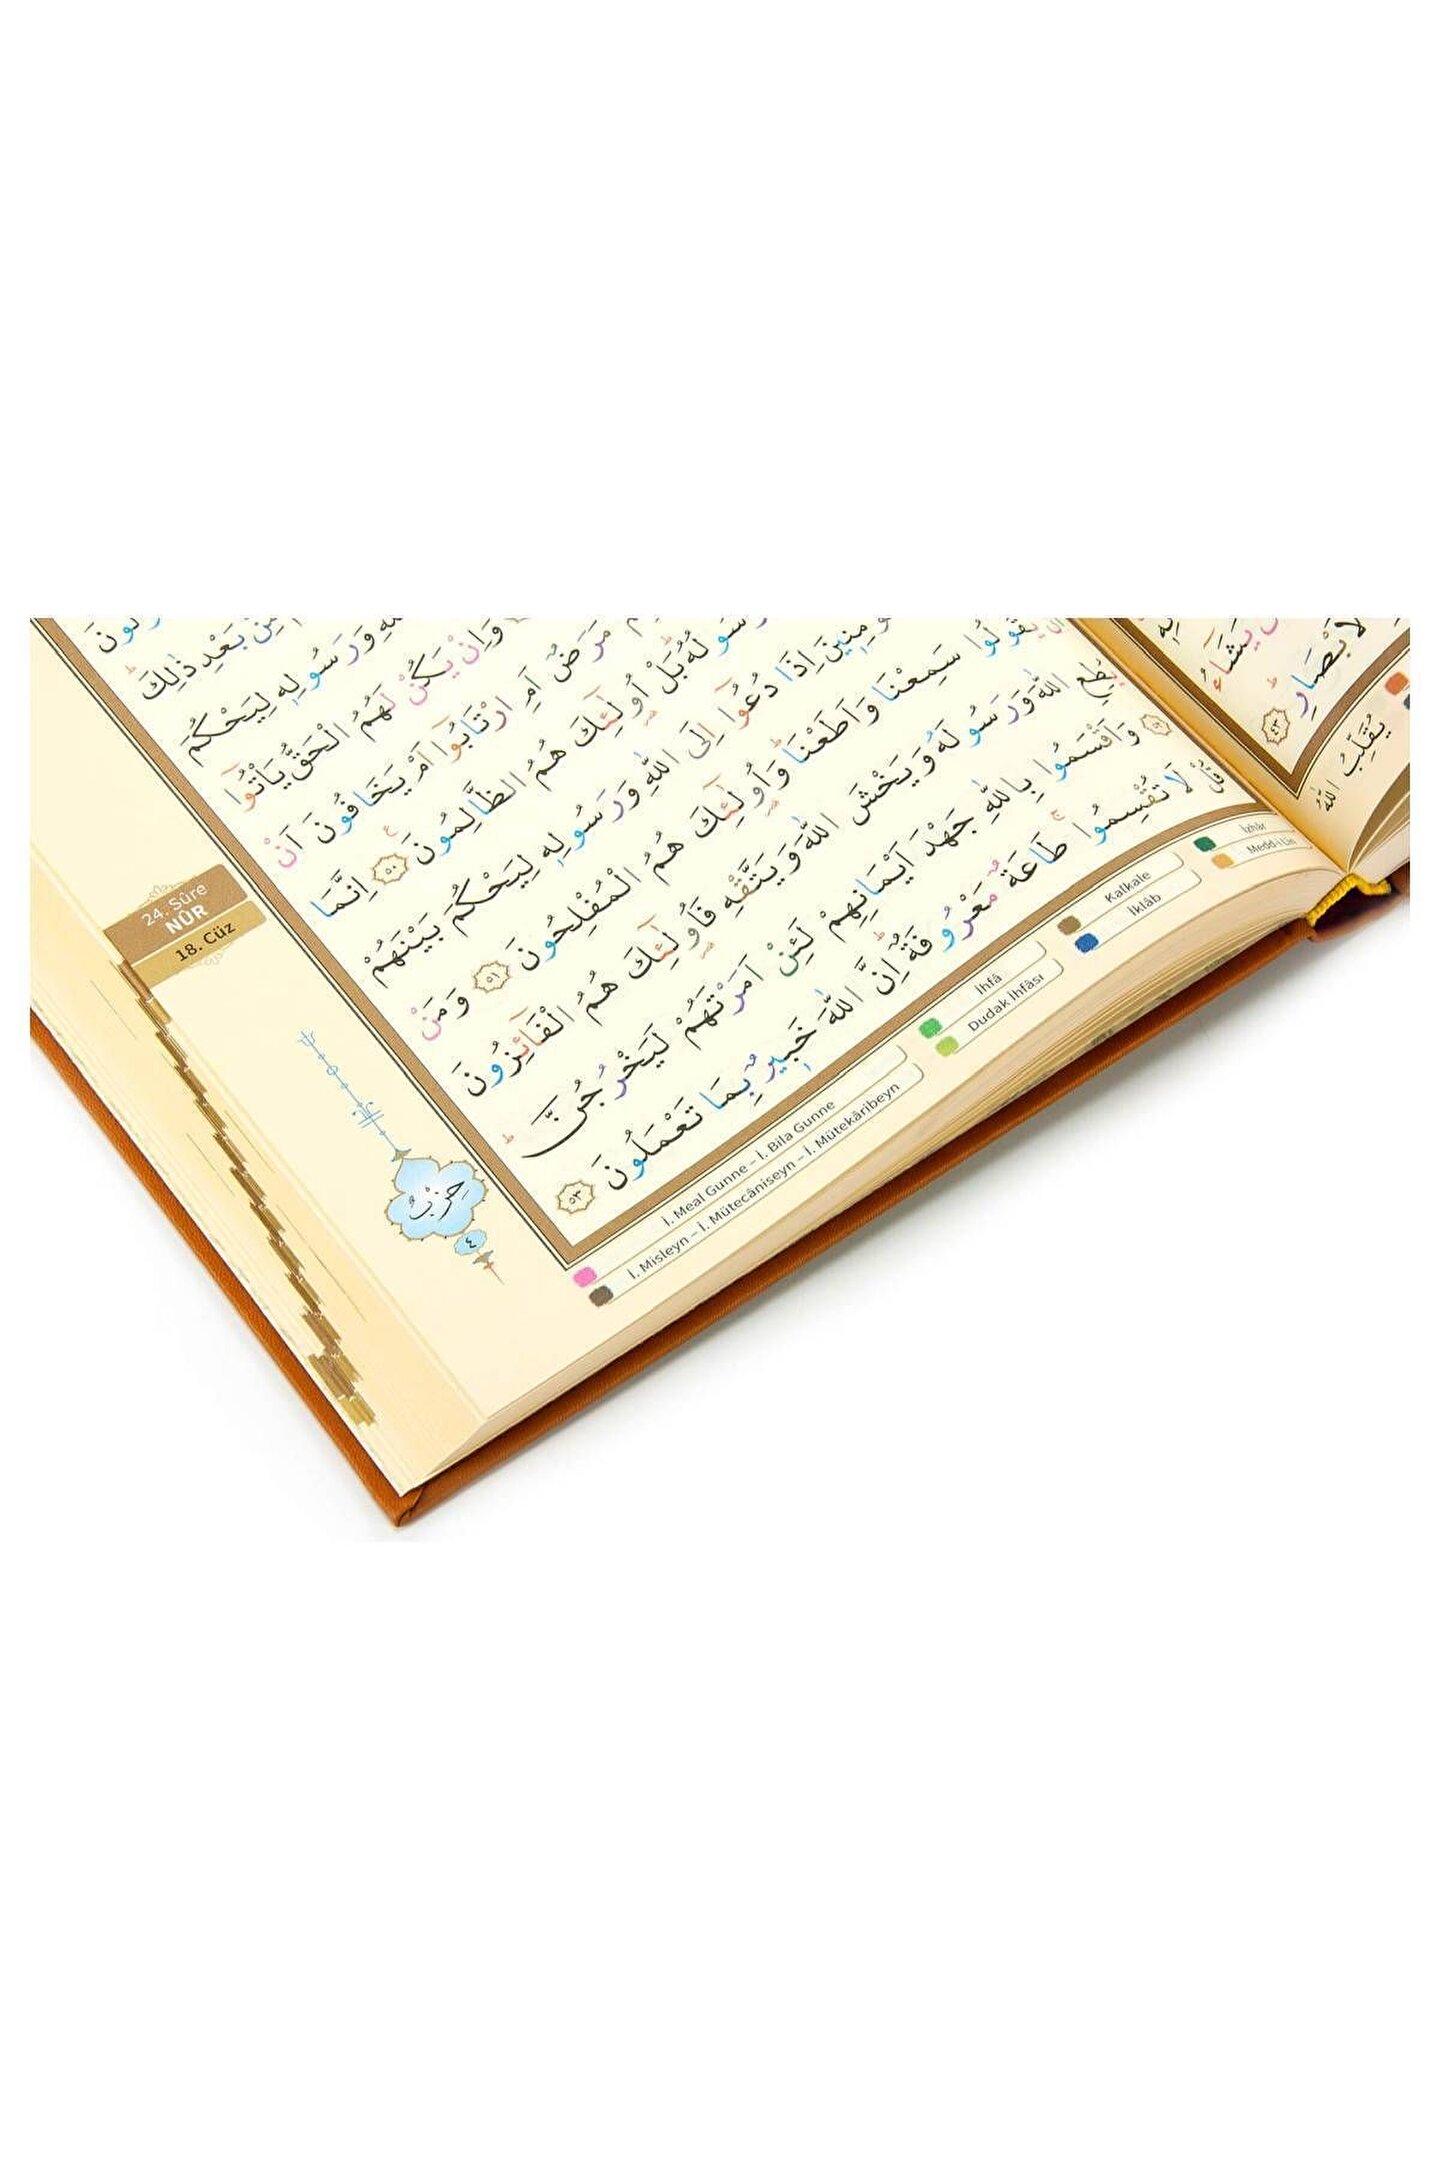 24. Sûre
NÛR
18. Cüz
مِنْ بَعْدِ ذٰلِكَ
وَرَسُولِهِ لِيَحْكُمَ
وَاِنْ يَكُنْ لَهُمُ الْحَقُّ يَأْتُوا
مَرَضٌ اَمِ ارْتَابُوا اَمْ يَخَافُونَ اَنْ
بَلْ اُولٰٓئِكَ هُمُ الظَّالِمُونَ ٥٠ اِنَّمَا
اِذَا دُعُوا اِلَى اللّٰهِ وَرَسُولِهِ لِيَحْكُمَ بَيْنَهُمْ
يَقُولُوا سَمِعْنَا وَاَطَعْنَا وَاُولٰٓئِكَ هُمُ الْمُفْلِحُونَ ٥١ وَمَنْ
يُطِعِ اللّٰهَ وَرَسُولَهُ وَيَخْشَ اللّٰهَ وَيَتَّقْهِ فَاُولٰٓئِكَ هُمُ الْفَٓائِزُونَ
٥٢ وَاَقْسَمُوا بِاللّٰهِ جَهْدَ اَيْمَانِهِمْ لَئِنْ اَمَرْتَهُمْ لَيَخْرُجُنَّ
قُلْ لَا تُقْسِمُوا طَاعَةٌ مَعْرُوفَةٌ اِنَّ اللّٰهَ خَبِيرٌ بِمَا تَعْمَلُونَ ٥٣
حِزْبٌ
٤
İ. Meal Gunne – İ. Bila Gunne
İ. Misleyn – İ. Mütecâniseyn – İ. Mütekâribeyn
İhfâ
Dudak İhfâsı
Kalkale
İklâb
İzhâr
Medd-i Lîn
يَشَٓاءُ
الْاَبْصَارِ ٤٣
يُقَلِّبُ اللّٰهُ